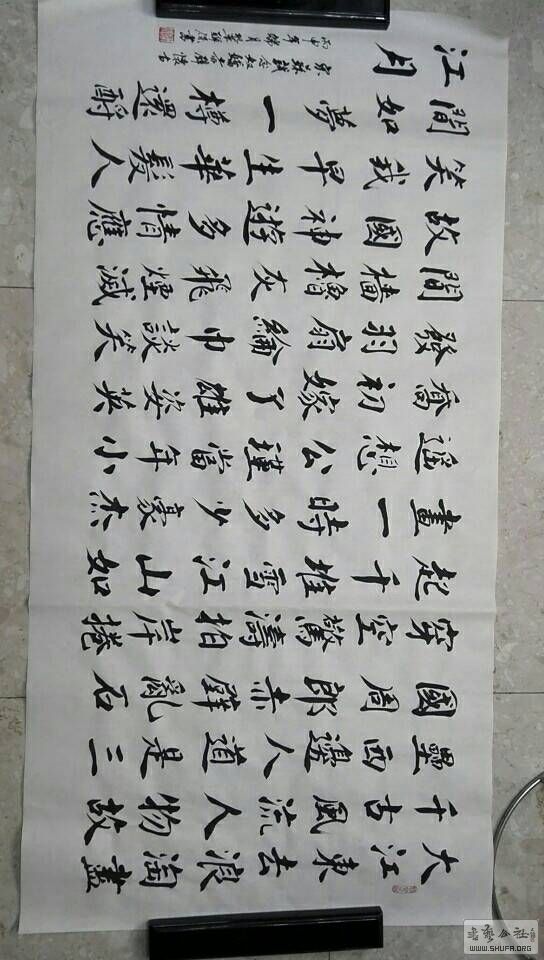 大江東去浪淘盡
千古風流人物故
壘西邊人道是三
國周郎赤壁亂石
穿空驚濤拍岸捲
起千堆雪江山如
畫一時多少豪杰
遙想公瑾當年小
喬初嫁了雄姿英
發羽扇綸巾談笑
間檣櫓灰飛煙滅
故國神遊多情應
笑我早生華髮人
間如夢一樽還酹
江月
宋蘇軾念奴嬌赤壁懷古
丙申年月書
WWW.SHUFA.ORG